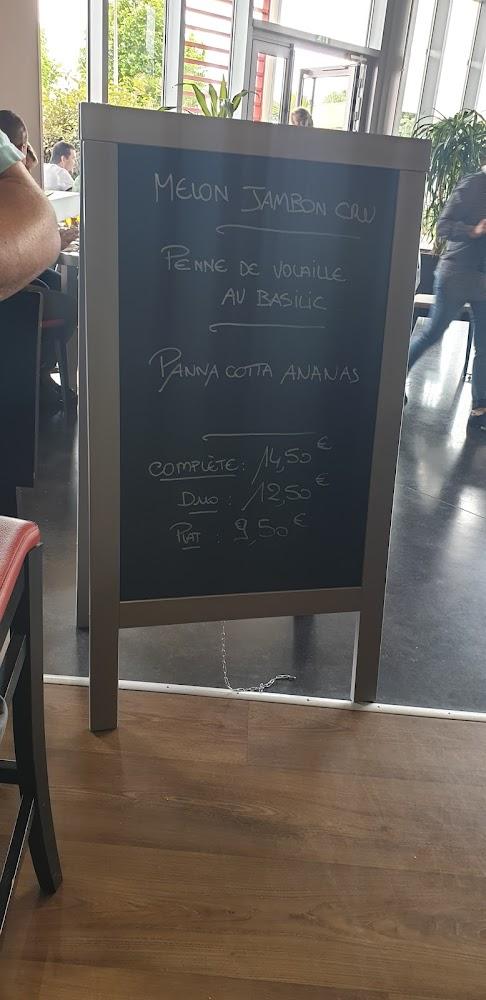 MELON JAMBON CRU
PENNE DE VOLAILLE
AU BASILIC
PANNA COTTA ANANAS
COMPLÈTE : 14,50 €
DUO : 12,50 €
PLAT : 9,50 €